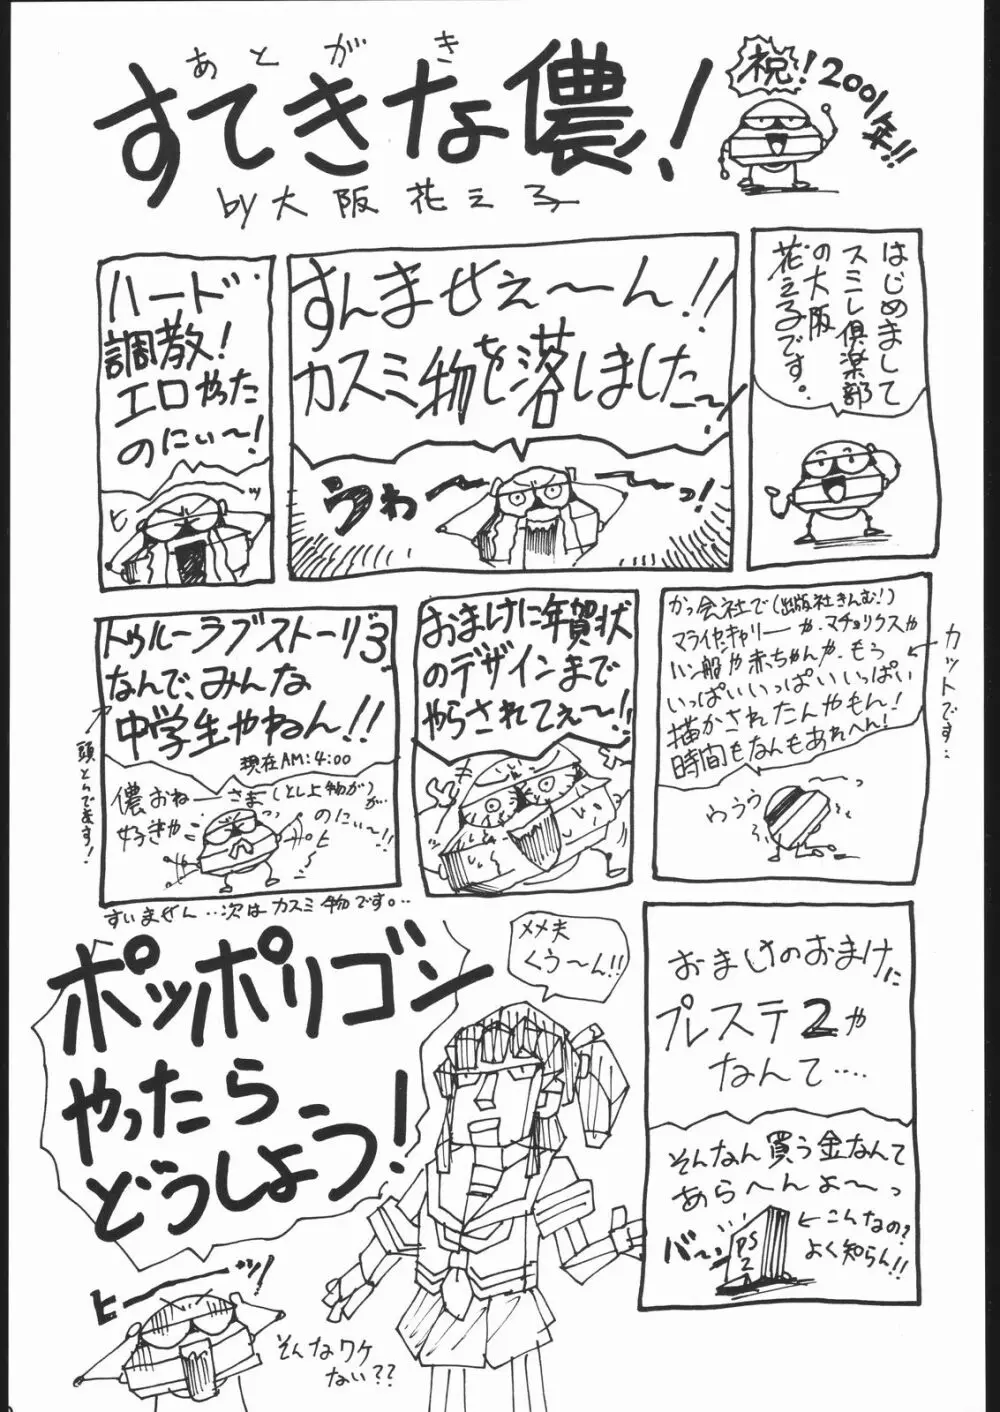 あとがき
すてきな儂!
by大阪花えみ
祝!
2001年!!
はじめまして
スミレ倶楽部
の大阪
花えるです。
すんませぇ〜ん!!
カスミ物を落しました〜!
うわ〜〜っ!
ハード
調教!
エロやった
のにぃ〜!
ヒーッ
かっ会社で(出版社きんむ!)
マライヤ・キャリーや、マチョリクスや
ハン般や赤ちゃんや、もう
いっぱいいっぱいいっぱい
描かされたんやもん!
時間もなんもあれへん!
カットです…
わううう
おまけに年賀状
のデザインまで
やらされてぇ〜!!
トゥルーラブストーリー3
なんで、みんな
中学生やねん!!
現在AM:4:00
頭とんでます!
儂おねーさま(とし上物が)が…
好きや
のにぃ〜!!
ヒ
すいません…次はカスミ物です。…
おまけのおまけに
プレステ2や
なんて….
そんなん買う金なんて
あらへんよ〜っ
バ〜ン
PS
2
←こんなの?
よく知らん!!
メメ夫
くう〜ん!!
ポッポリゴン
やったら
どうしよう!
ヒーーッ!
そんなワケ
ない??